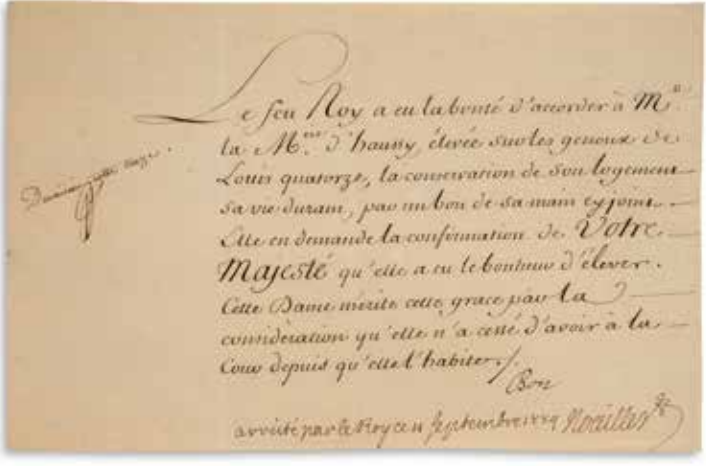 Le feu Roy a eu la bonté d'accorder à M
la élevée sur les genoux de
Louis quatorze, la conservation de son logement
sa vie durant, par un bon de sa main cy joint.
Elle en demande la confirmation de Votre
Majesté qu'elle a eu le bonheur d'élever.
Cette Dame mérite cette grace par la
considération qu'elle n'a cessé d'avoir à la
Cour depuis qu'elle l'habite./.
Bon
arresté par le Roy ce septembre Noailles